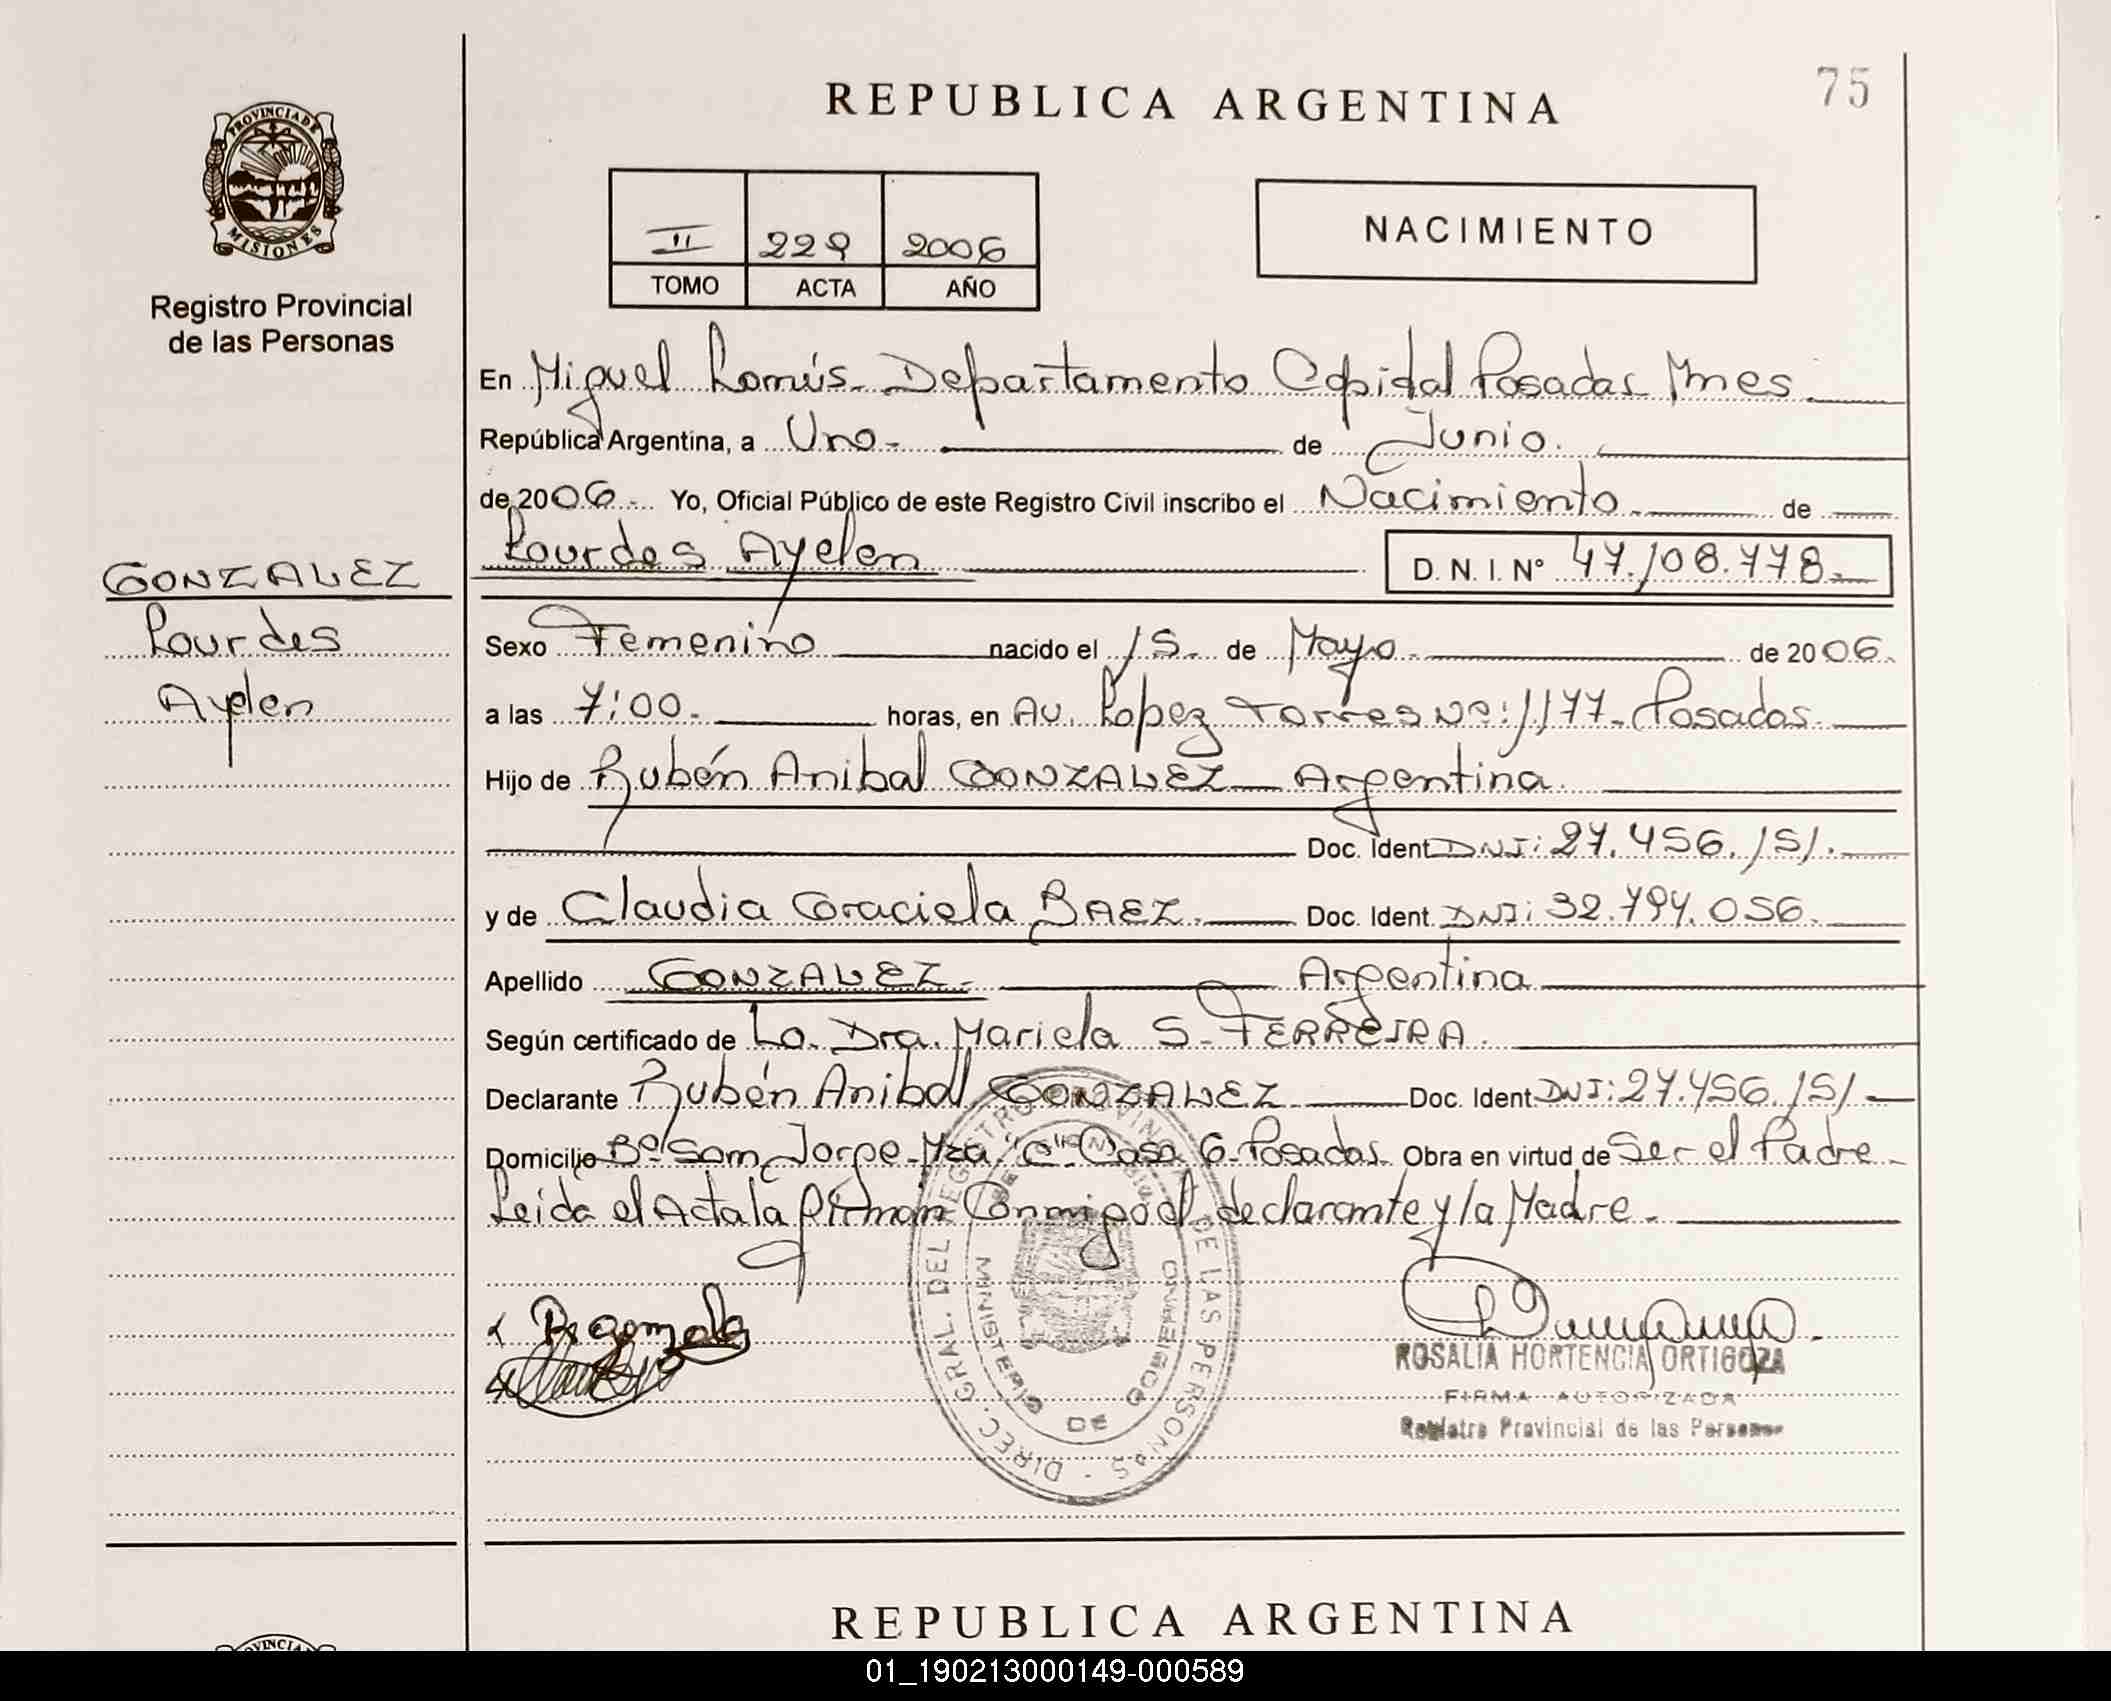 REPUBLICA ARGENTINA
75
PROVINCIA DE MISIONES
Registro Provincial
de las Personas
II 229 2006
TOMO ACTA AÑO
NACIMIENTO
En Miguel Lanús. Departamento Capital Posadas Mnes.
República Argentina, a Uno.- de Junio.
de 2006.- Yo, Oficial Público de este Registro Civil inscribo el Nacimiento de
Lourdes Ayelen D. N. I. Nº 47.108.778.-
GONZALEZ
Lourdes
Ayelen
Sexo Femenino nacido el 15. de Mayo. de 2006.
a las 7:00. horas, en Av. Lopez Torres Nº: 1177- Posadas.
Hijo de Rubén Anibal GONZALEZ Argentina.
Doc. Ident DNI: 27.456.151.
y de Claudia Graciela BAEZ. Doc. Ident. DNI: 32.794.056.
Apellido GONZALEZ. Argentina
Según certificado de La. Dra. Mariela S. FERREIRA.
Declarante Rubén Anibal GONZALEZ Doc. Ident DNI: 27.456.151
Domicilio Bº San Jorge Mza "C" Casa 6- Posadas. Obra en virtud de Ser el Padre-
Leida el Acta la firman Conmigo el declarante y la Madre.
DIREC. GRAL. DEL REGISTRO PROVINCIAL DE LAS PERSONAS
MINISTERIO DE GOBIERNO
ROSALIA HORTENCIA ORTIGOZA
FIRMA AUTORIZADA
Registro Provincial de las Personas
REPUBLICA ARGENTINA
01_190213000149-000589